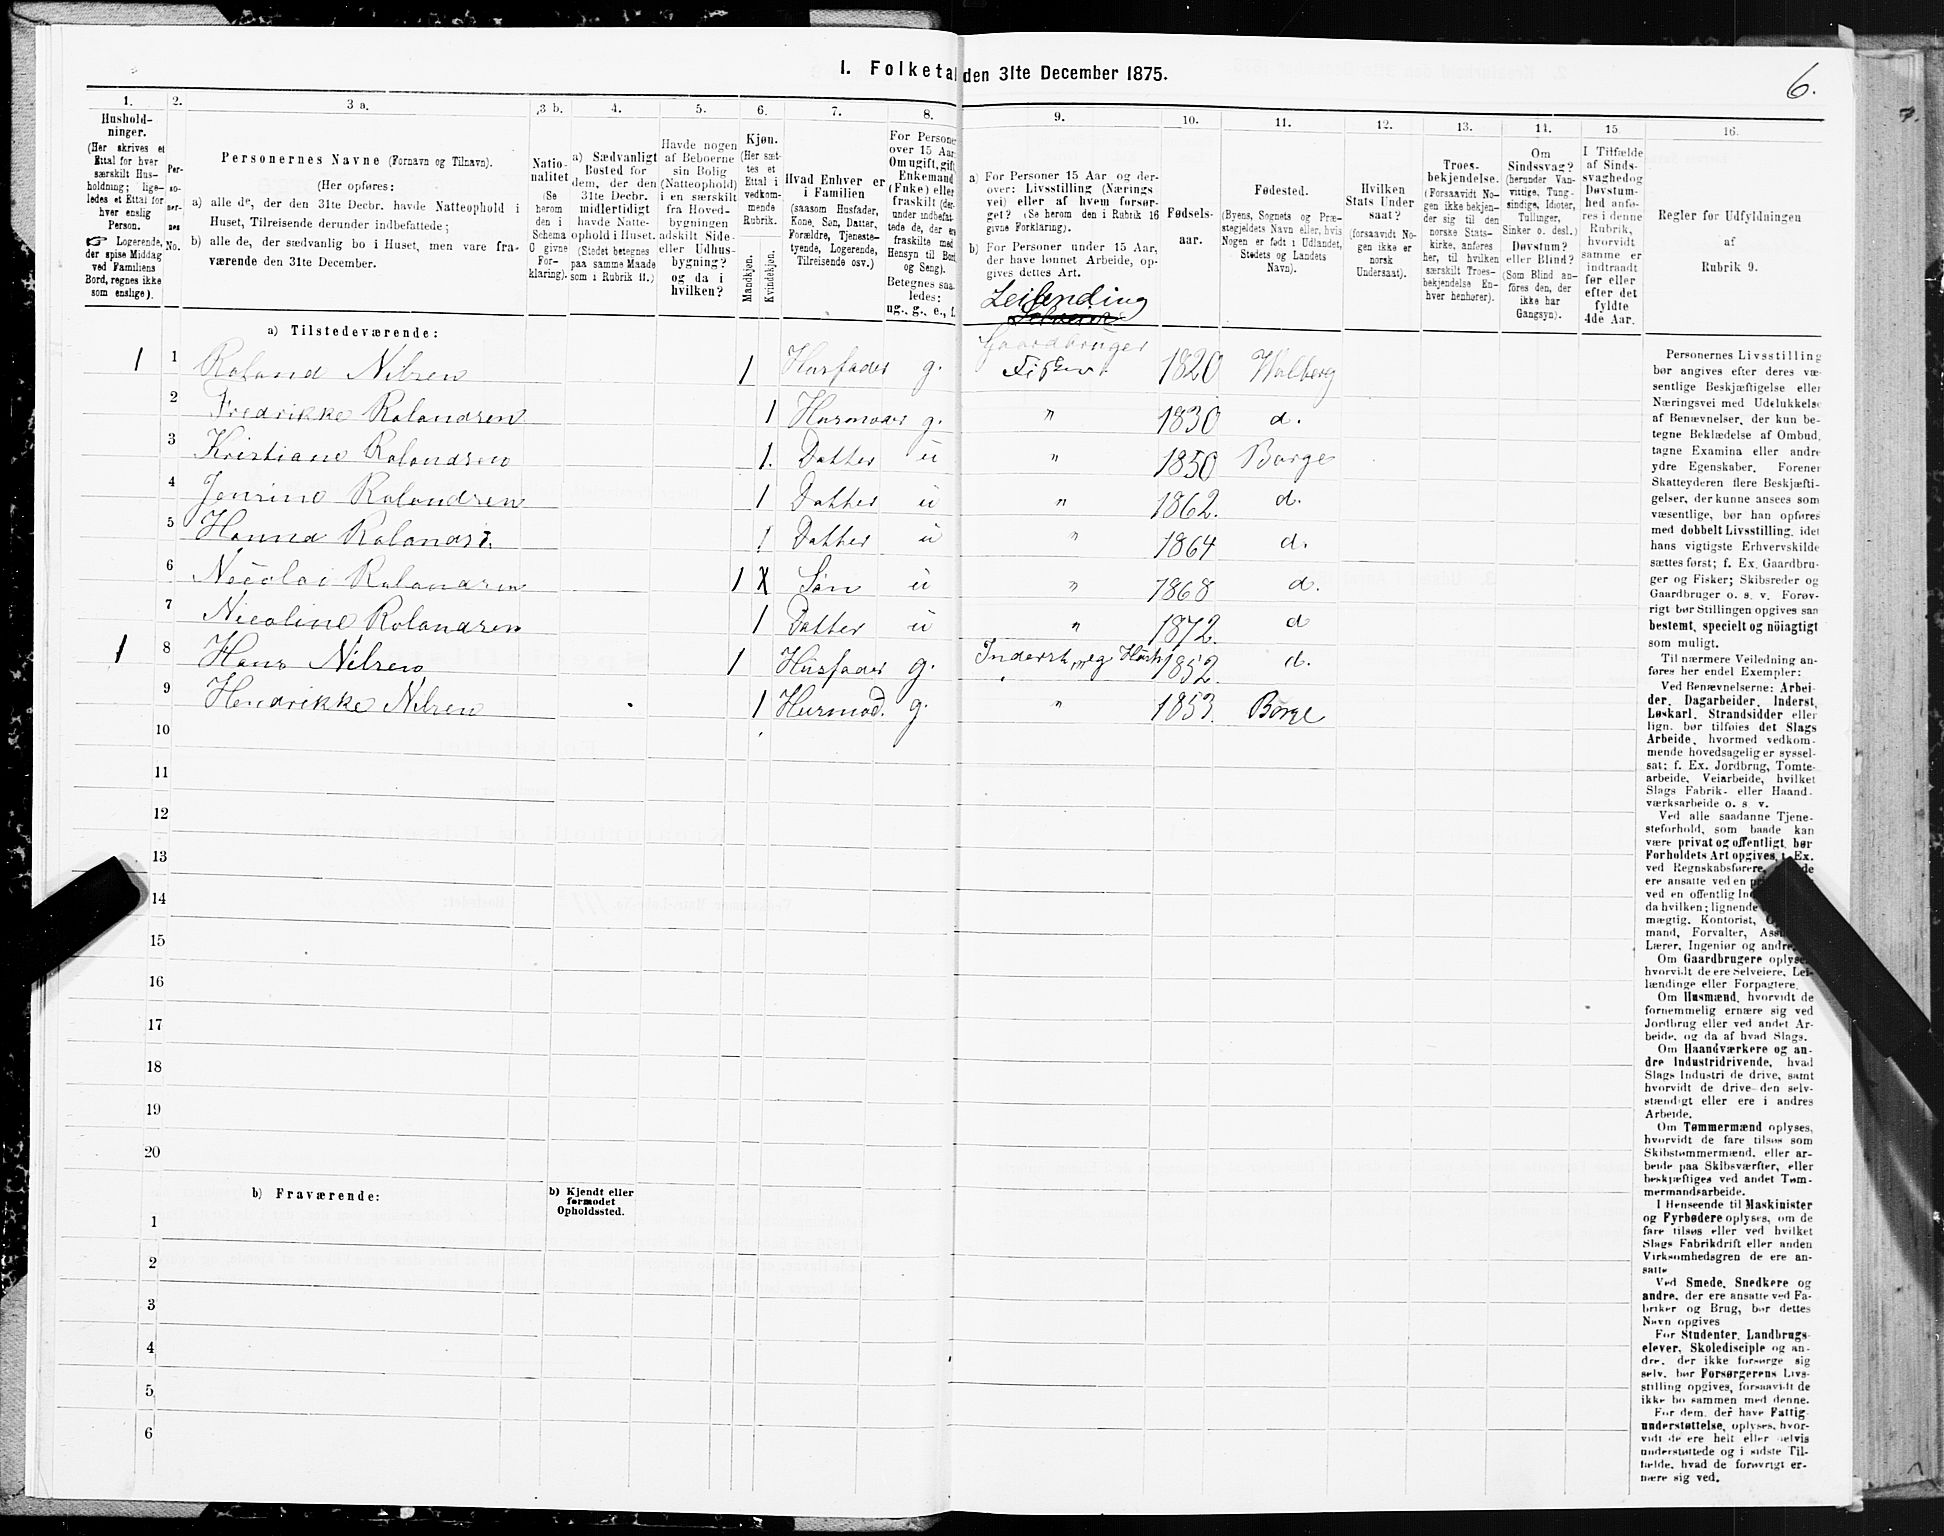 I. Folketal den 31te December 1875.
6.
7.
1.
Hushold-
ninger.
(Her skrives et
Ettal for hver
særskilt Hus-
holdning; lige-
ledes et Ettal for
hver enslig
Person.
☞ Logerende,
der spise Middag
ved Familiens
Bord, regnes ikke
som enslige).
2.
Per-
so-
ner-
nes
No.
3 a.
Personernes Navne (Fornavn og Tilnavn).
(Her opføres:
a) alle de, der den 31te Decbr. havde Natteophold i
Huset, Tilreisende derunder indbefattede;
b) alle de, der sædvanlig bo i Huset, men vare fra-
værende den 31te December.
3 b.
Natio-
nalitet
(Se
herom
den i
Schema
G givne
For-
klaring).
4.
a) Sædvanligt
Bosted for
dem, der den
31te Decbr.
midlertidigt
havde Natte-
ophold i Huset.
(Stedet betegnes
paa samme Maade
som i Rubrik 11.)
5.
Havde nogen
af Beboerne
sin Bolig
(Natteophold)
i en særskilt
fra Hoved-
bygningen
adskilt Side-
eller Udhus-
bygning?
og da i
hvilken?
6.
Kjøn.
(Her sæt-
tes et
Ettal i
vedkom-
mende
Rubrik.
Mandkjøn.
Kvindekjøn.
7.
Hvad Enhver er
i Familien
(saasom Husfader,
Kone, Søn, Datter,
Forældre, Tjeneste-
tyende, Logerende,
Tilreisende osv.)
8.
For Personer
over 15 Aar:
Om ugift, gift,
Enkemand
(Enke) eller
fraskilt (der-
under indbefat-
tede de, der er
fraskilte med
Hensyn til Bord
og Seng).
Betegnes saa-
ledes:
ug., g., e., f.
9.
a) For Personer 15 Aar og der-
over: Livsstilling (Nærings-
vei) eller af hvem forsør-
get? (Se herom den i Rubrik 16
givne Forklaring).
b) For Personer under 15 Aar,
der have lønnet Arbeide, op-
gives dettes Art.
10.
Fødsels-
aar.
11.
Fødested.
(Byens, Sognets og Præ-
stegjeldets Navn eller, hvis
Nogen er født i Udlandet,
Stedets og Landets
Navn).
12.
Hvilken
Stats Under-
saat?
(forsaavidt No-
gen ikke er
norsk
Undersaat).
13.
Troes-
bekjendelse.
(Forsaavidt No-
gen ikke bekjen-
der sig til den
norske Stats-
kirke, anføres
her, til hvilken
særskilt Troes-
bekjendelse En-
hver henhører).
14.
Om
Sindssvag?
(herunder Van-
vittige, Tung-
sindige, Idioter,
Tullinger,
Sinker o. desl.)
Døvstum?
eller Blind?
(Som Blind an-
føres den, der
ikke har
Gangsyn).
15.
I Tilfælde
af Sinds-
svaghed og
Døvstum-
hed anfø-
res i denne
Rubrik,
hvorvidt
samme er
indtraadt
før eller
efter det
fyldte
4de Aar.
16.
Regler for Udfyldningen
af
Rubrik 9.
a) Tilstedeværende:
Leilending
Gaardbruger
1 1 Roland Nilsen 1 Husfader g. Fisker 1820 Walberg
2 Fredrikke Rolandsen 1 Husmoder g. " 1830 d.
3 Kristiane Rolandsen 1. Datter u " 1850 Borge
4 Jensine Rolandsen 1 Datter u " 1862. d.
5 Hanna Rolands. 1 Datter u " 1864 d.
6 Nicolai Rolandsen 1 Søn u " 1868 d.
7 Nicoline Rolandsen 1 Datter u " 1872. d
1 8 Hans Nilsen 1 Husfader g. Inderst 1852. d.
9 Hendrikke Nilsen 1 Husmod. g. " 1853 Borge
10
11
12
13
14
15
16
17
18
19
20
b) Fraværende:
b) Kjendt eller
formodet
Opholdssted.
1
2
3
4
5
6
Personernes Livsstilling
bør angives efter deres væ-
sentlige Beskjæftigelse eller
Næringsvei med Udelukkelse
af Benævnelser, der kun be-
tegne Beklædelse af Ombud,
tagne Examina eller andre
ydre Egenskaber. Forener
Skatteyderen flere Beskjæfti-
gelser, der kunne ansees som
væsentlige, bør han opføres
med dobbelt Livsstilling, idet
hans vigtigste Erhvervskilde
sættes først; f. Ex. Gaardbru-
ger og Fisker; Skibsreder og
Gaardbruger o. s. v. Forøv-
rigt bør Stillingen opgives saa
bestemt, specielt og nöiagtigt
som muligt.
Til nærmere Veiledning an-
føres her endel Exempler:
Ved Benævnelserne: Arbei-
der, Dagarbeider, Inderst,
Løskarl, Strandsidder eller
lign. bør tilføies det Slags
Arbeide, hvormed vedkom-
mende hovedsagelig er syssel-
sat; f. Ex. Jordbrug, Tomte-
arbeide, Veiarbeide, hvilket
Slags Fabrik- eller Haand-
værksarbeide o. s. v.
Ved alle saadanne Tjene-
steforhold, som baade kan
være privat og offentligt, bør
Forholdets Art opgives, f. Ex.
ved Regnskabsførere,
ere ansatte ved en
ved en offentlig
da hvilken; lignende
mægtig, Kontorist,
mand, Forvalter,
Lærer, Ingeniør og andre.
Om Gaardbrugere oplyses,
hvorvidt de ere Selveiere, Lei-
lændinge eller Forpagtere.
Om Husmænd, hvorvidt de
fornemmelig ernære sig ved
Jordbrug eller ved andet Ar-
beide, og da af hvad Slags.
Om Haandværkere og an-
dre Industridrivende, hvad
Slags Industri de drive, samt
hvorvidt de drive den selv-
stændigt eller ere i andres
Arbeide.
Om Tømmermænd oplyses,
hvorvidt de fare tilsøs som
Skibstømmermænd, eller ar-
beide paa Skibsværfter, eller
beskjæftiges ved andet Tøm-
mermandsarbeide.
I Henseende til Maskinister
og Fyrbødere oplyses, om de
fare tilsøs eller ved hvilket
Slags Fabrikdrift eller anden
Virksomhedsgren de ere an-
satte
Ved Smede, Snedkere og
andre, der ere ansatte ved Fa-
briker og Brug, bør dettes
Navn opgives
For Studenter, Landbrugs-
elever, Skoledisciple og an-
dre, der ikke forsørge sig
selv, bør Forsørgerens Livs-
stilling opgives, forsaavidt de
ikke bo sammen med denne.
For dem, der have Fattig-
understøttelse, oplyses, hvor-
vidt de ere helt eller delvis
understøttede og i sidste Til-
fælde, hvad de forøvrigt er-
nære sig ved.